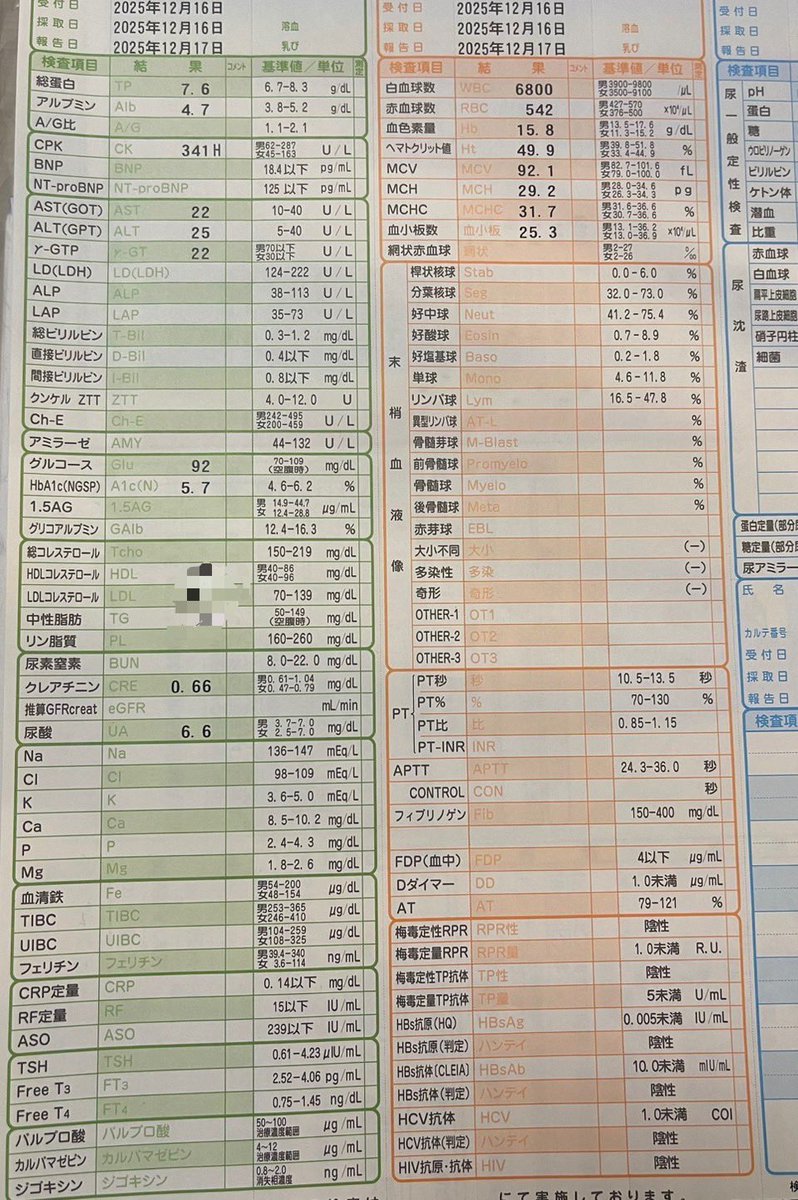 受付日 2025年12月16日
採取日 2025年12月16日 溶血
報告日 2025年12月17日 乳び
検査項目 結果 コメント 基準値/単位
総蛋白 TP 7.6 6.7-8.3 g/dL
アルブミン Alb 4.7 3.8-5.2 g/dL
A/G比 A/G 1.1-2.1
CPK CK 341 H 男62-287 女45-163 U/L
BNP BNP 18.4以下 pg/mL
NT-proBNP NT-proBNP 125以下 pg/mL
AST(GOT) AST 22 10-40 U/L
ALT(GPT) ALT 25 5-40 U/L
γ-GTP γ-GT 22 男70以下 女30以下 U/L
LD(LDH) LD(LDH) 124-222 U/L
ALP ALP 38-113 U/L
LAP LAP 35-73 U/L
総ビリルビン T-Bil 0.3-1.2 mg/dL
直接ビリルビン D-Bil 0.4以下 mg/dL
間接ビリルビン I-Bil 0.8以下 mg/dL
クンケル ZTT ZTT 4.0-12.0 U
Ch-E Ch-E 男242-495 女200-459 U/L
アミラーゼ AMY 44-132 U/L
グルコース Glu 92 70-109 (空腹時) mg/dL
HbA1c(NGSP) A1c(N) 5.7 4.6-6.2 %
1.5AG 1.5AG 男 14.9-44.7 女 12.4-28.8 μg/mL
グリコアルブミン GAlb 12.4-16.3 %
総コレステロール Tcho 150-219 mg/dL
HDLコレステロール HDL 男40-86 女40-96 mg/dL
LDLコレステロール LDL 70-139 mg/dL
中性脂肪 TG 50-149 (空腹時) mg/dL
リン脂質 PL 160-260 mg/dL
尿素窒素 BUN 8.0-22.0 mg/dL
クレアチニン CRE 0.66 男0.61-1.04 女0.47-0.79 mg/dL
推算GFRcreat eGFR mL/min
尿酸 UA 6.6 男 3.7-7.0 女 2.5-7.0 mg/dL
Na Na 136-147 mEq/L
Cl Cl 98-109 mEq/L
K K 3.6-5.0 mEq/L
Ca Ca 8.5-10.2 mg/dL
P P 2.4-4.3 mg/dL
Mg Mg 1.8-2.6 mg/dL
血清鉄 Fe 男54-200 女48-154 μg/dL
TIBC TIBC 男253-365 女246-410 μg/dL
UIBC UIBC 男104-259 女108-325 μg/dL
フェリチン フェリチン 男39.4-340 女 3.6-114 ng/mL
CRP定量 CRP 0.14以下 mg/dL
RF定量 RF 15以下 IU/mL
ASO ASO 239以下 IU/mL
TSH TSH 0.61-4.23 μIU/mL
Free T3 FT3 2.52-4.06 pg/mL
Free T4 FT4 0.75-1.45 ng/dL
バルプロ酸 バルプロ酸 50~100 治療濃度範囲 μg/mL
カルバマゼピン カルバマゼピン 4~12 治療濃度範囲 μg/mL
ジゴキシン ジゴキシン 0.8~2.0 ng/mL
受付日 2025年12月16日
採取日 2025年12月16日 溶血
報告日 2025年12月17日 乳び
検査項目 結果 コメント 基準値/単位
白血球数 WBC 6800 男3900-9800 女3500-9100 /μL
赤血球数 RBC 542 男427-570 女376-500 ×10⁴/μL
血色素量 Hb 15.8 男13.5-17.6 女11.3-15.2 g/dL
ヘマトクリット値 Ht 49.9 男39.8-51.8 女33.4-44.9 %
MCV MCV 92.1 男82.7-101.6 女79.0-100.0 fL
MCH MCH 29.2 男28.0-34.6 女26.3-34.3 pg
MCHC MCHC 31.7 男31.6-36.6 女30.7-36.6 %
血小板数 血小板 25.3 男13.1-36.2 女13.0-36.9 ×10⁴/μL
網状赤血球 網状 男2-27 女2-26 ‰
末梢血液像
桿状核球 Stab 0.0-6.0 %
分葉核球 Seg 32.0-73.0 %
好中球 Neut 41.2-75.4 %
好酸球 Eosin 0.7-8.9 %
好塩基球 Baso 0.2-1.8 %
単球 Mono 4.6-11.8 %
リンパ球 Lym 16.5-47.8 %
異型リンパ球 AT-L %
骨髄芽球 M-Blast %
前骨髄球 Promyelo %
骨髄球 Myelo %
後骨髄球 Meta %
赤芽球 EBL
大小不同 大小 (-)
多染性 多染 (-)
奇形 奇形 (-)
OTHER-1 OT1
OTHER-2 OT2
OTHER-3 OT3
PT
PT秒 秒 10.5-13.5 秒
PT% % 70-130 %
PT比 比 0.85-1.15
PT-INR INR
APTT APTT 24.3-36.0 秒
CONTROL CON 秒
フィブリノゲン Fib 150-400 mg/dL
FDP(血中) FDP 4以下 μg/mL
Dダイマー DD 1.0未満 μg/mL
AT AT 79-121 %
梅毒定性RPR RPR性 陰性
梅毒定量RPR RPR量 1.0未満 R.U.
梅毒定性TP抗体 TP性 陰性
梅毒定量TP抗体 TP量 5未満 U/mL
HBs抗原(HQ) HBsAg 0.005未満 IU/mL
HBs抗原(判定) ハンテイ 陰性
HBs抗体(CLEIA) HBsAb 10.0未満 mIU/mL
HBs抗体(判定) ハンテイ 陰性
HCV抗体 HCV 1.0未満 COI
HCV抗体(判定) ハンテイ 陰性
HIV抗原・抗体 HIV 陰性
にて実施しております。
受付日
採取日
報告日
検査項目
尿一般定性検査
pH
蛋白
糖
ウロビリノーゲン
ビリルビン
ケトン体
潜血
比重
尿沈渣
赤血球
白血球
扁平上皮細胞
尿路上皮細胞
硝子円柱
細菌
蛋白定量(部分
糖定量(部分
尿アミラー
氏名
カルテ番号
受付日
採取日
報告日
検査項